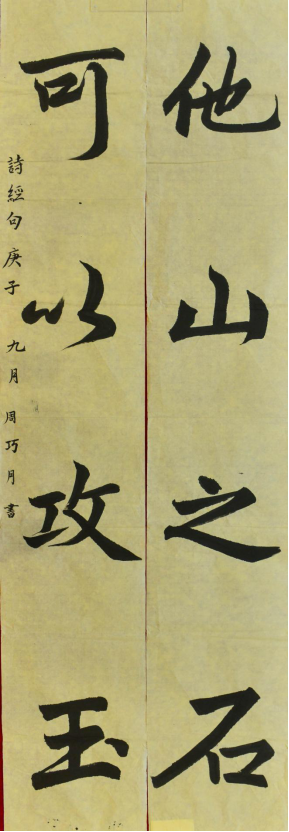 他山之石
可以攻玉
詩經句庚子九月周巧月書